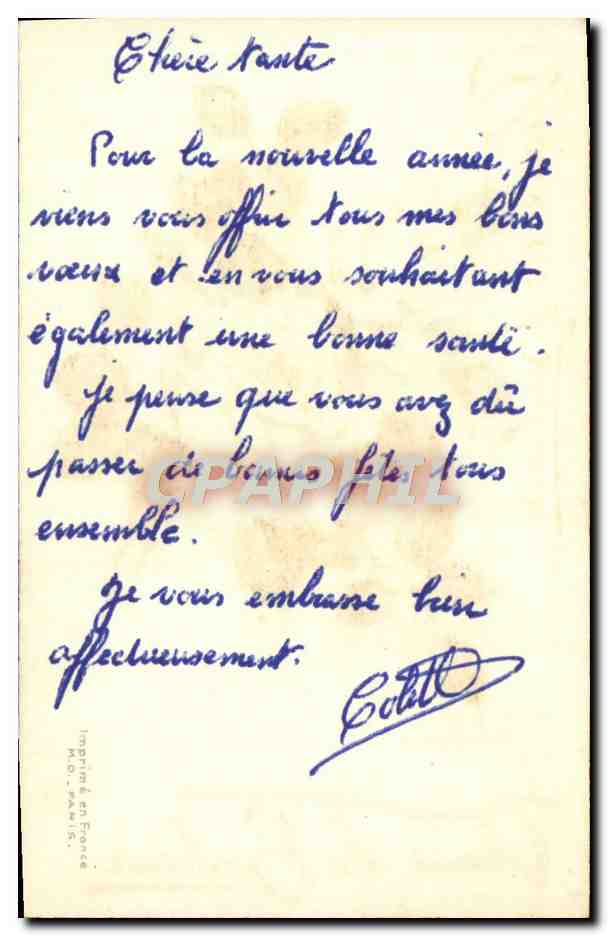 Chère Tante
Pour la nouvelle année, je
viens vous offrir tous mes bons
vœux et en vous souhaitant
également une bonne santé.
Je pense que vous avez dû
passer de bonnes fêtes tous
ensemble.
Je vous embrasse bien
affectueusement.
Colette
Imprimé en France
M.D. - PARIS.
CPAPHIL